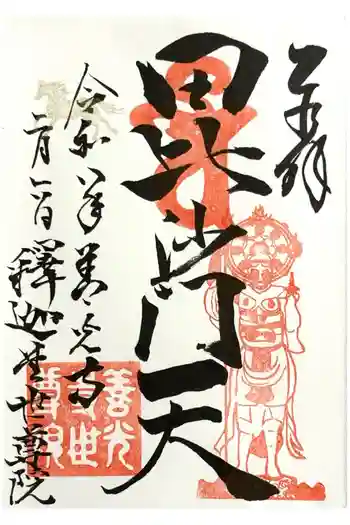 奉拝
毘沙門天
令和八年 善光寺
二月一日 釋迦堂世尊院
善光
寺世
尊院